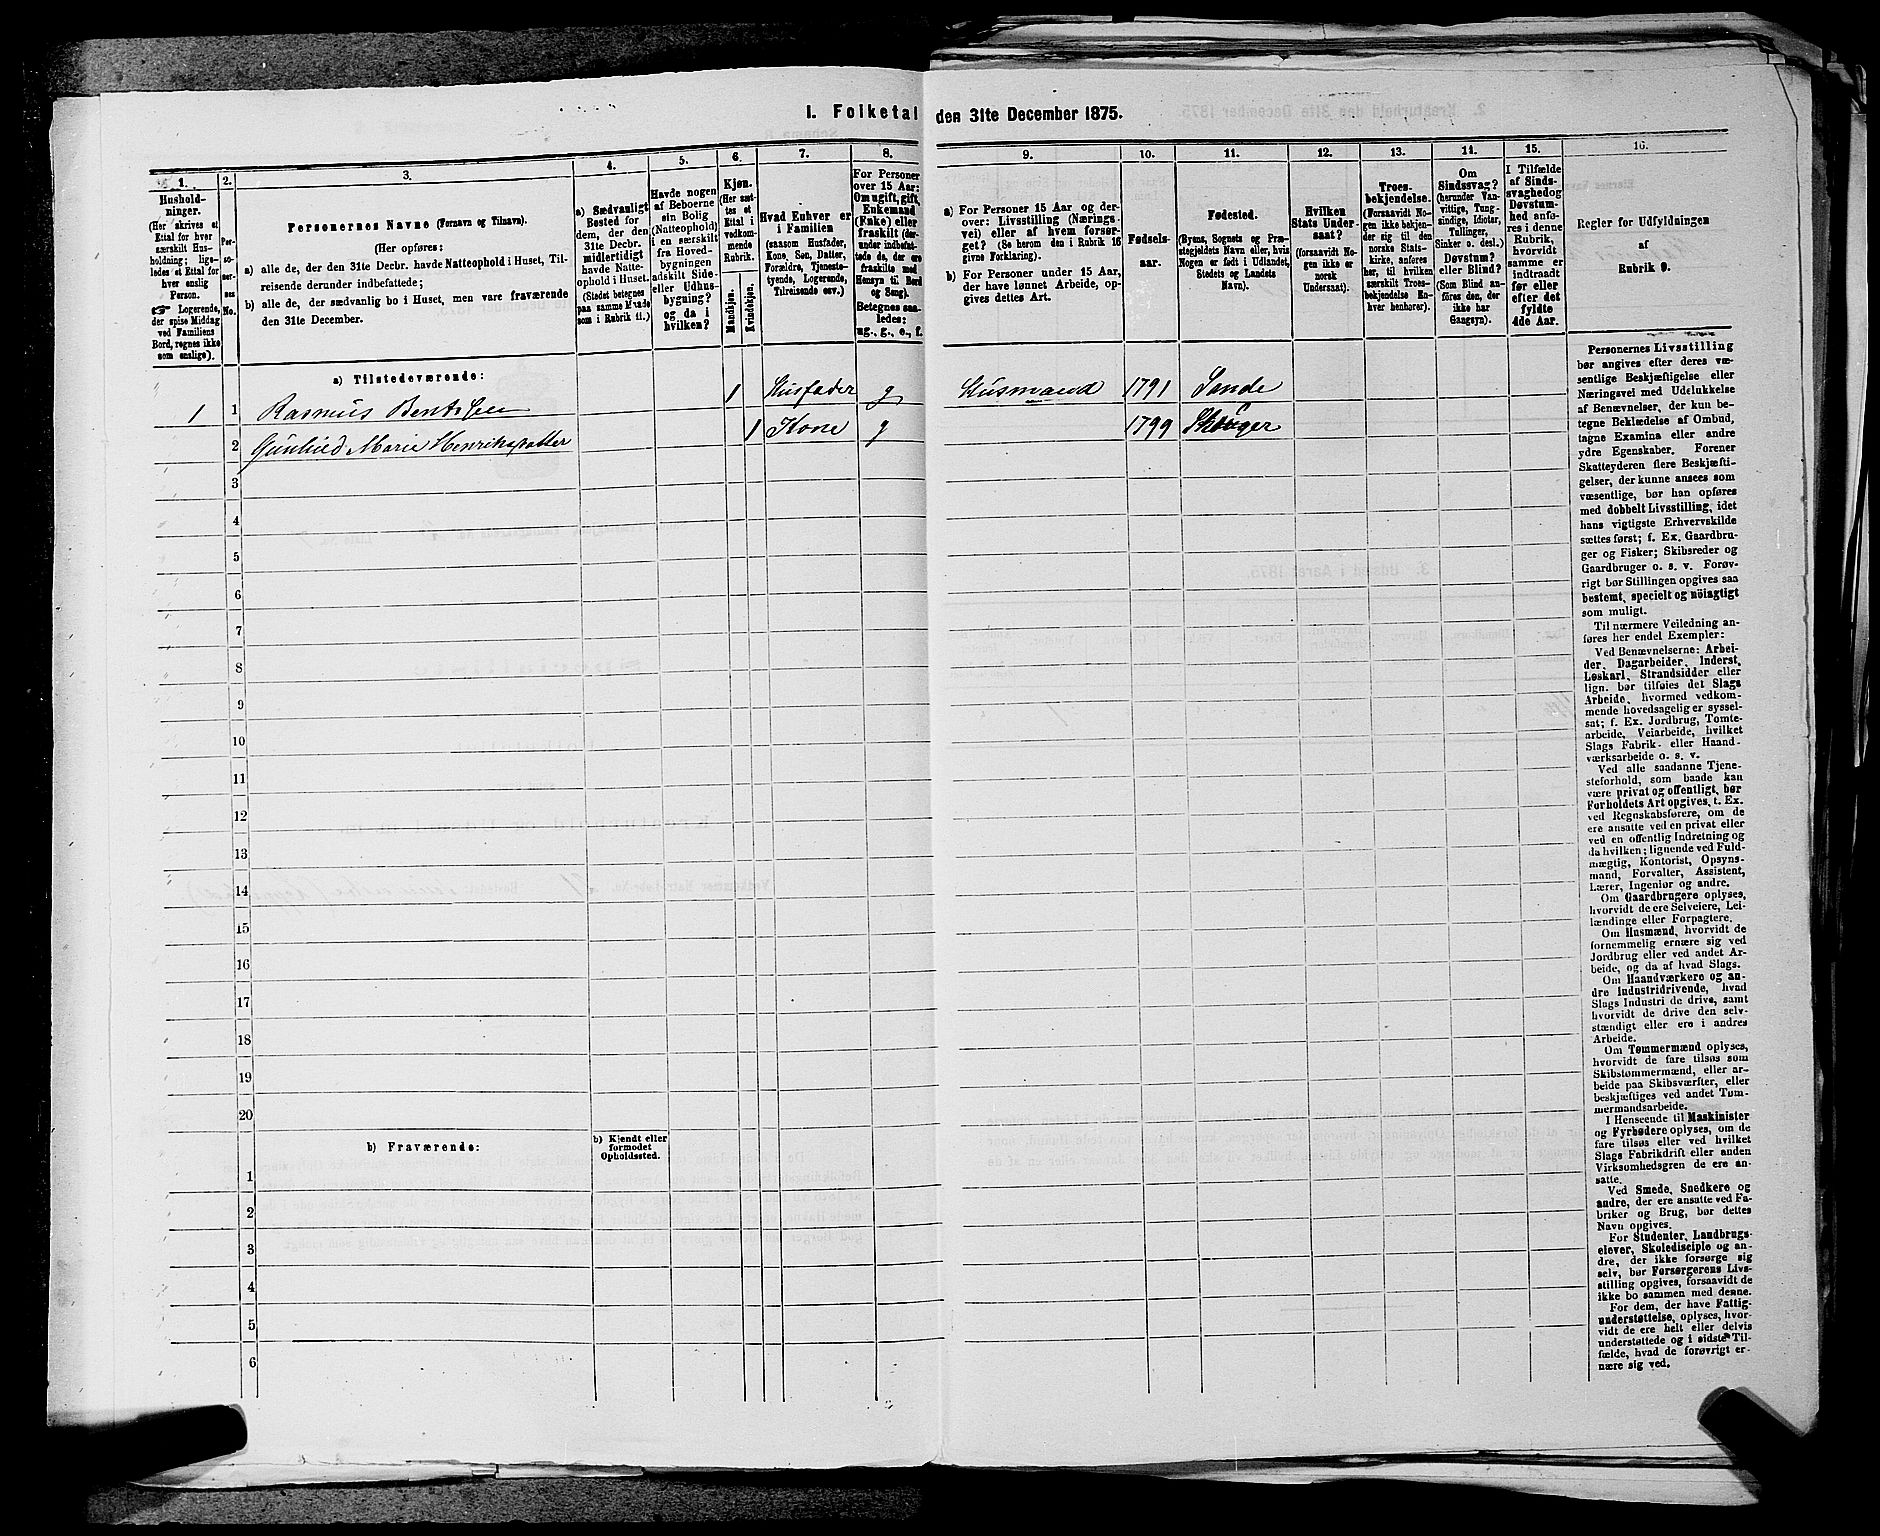 I. Folketal den 31te December 1875.
1.
Hushold-
ninger.
(Her skrives et
Ettal for hver
særskilt Hus-
holdning; lige-
ledes et Ettal for
hver enslig
Person.
☞ Logerende,
der spise Middag
ved Familiens
Bord, regnes ikke
som enslige).
2.
Per-
so-
ner-
nes
No.
3.
Personernes Navne (Fornavn og Tilnavn).
(Her opføres:
a) alle de, der den 31te Decbr. havde Natteophold i Huset, Til-
reisende derunder indbefattede;
b) alle de, der sædvanlig bo i Huset, men vare fraværende
den 31te December.
4.
a) Sædvanligt
Bosted for
dem, der den
31te Decbr.
midlertidigt
havde Natte-
ophold i Huset.
(Stedet betegnes
paa samme Maade
som i Rubrik 11.)
5.
Havde nogen
af Beboerne
sin Bolig
(Natteophold)
i en særskilt
fra Hoved-
bygningen
adskilt Side-
eller Udhus-
bygning?
og da i
hvilken?
6.
Kjøn.
(Her sæt-
tes et
Ettal i
vedkom-
mende
Rubrik.
Mandkjøn.
Kvindekjøn.
7.
Hvad Enhver er
i Familien
(saasom Husfader,
Kone, Søn, Datter,
Forældre, Tjeneste-
tyende, Logerende,
Tilreisende osv.)
8.
For Personer
over 15 Aar:
Om ugift, gift,
Enkemand
(Enke) eller
fraskilt (der-
under indbefat-
tede de, der ere
fraskilte med
Hensyn til Bord
og Seng).
Betegnes saa-
ledes:
ug., g., e., f.
9.
a) For Personer 15 Aar og der-
over: Livsstilling (Nærings-
vei) eller af hvem forsør-
get? (Se herom den i Rubrik 16
givne Forklaring).
b) For Personer under 15 Aar,
der have lønnet Arbeide, op-
gives dettes Art.
10.
Fødsels-
aar.
11.
Fødested.
(Byens, Sognets og Præ-
stegjeldets Navn eller, hvis
Nogen er født i Udlandet,
Stedets og Landets
Navn).
12.
Hvilken
Stats Under-
saat?
(forsaavidt No-
gen ikke er
norsk
Undersaat).
13.
Troes-
bekjendelse.
(Forsaavidt No-
gen ikke bekjen-
der sig til den
norske Stats-
kirke, anføres
her, til hvilken
særskilt Troes-
bekjendelse En-
hver henhører).
14.
Om
Sindssvag?
(herunder Van-
vittige, Tung-
sindige, Idioter,
Tullinger,
Sinker o. desl.)
Døvstum?
eller Blind?
(Som Blind an-
føres den, der
ikke har
Gangsyn).
15.
I Tilfælde
af Sinds-
svaghedog
Døvstum-
hed anfø-
res i denne
Rubrik,
hvorvidt
samme er
indtraadt
før eller
efter det
fyldte
4de Aar.
16.
Regler for Udfyldningen
af
Rubrik 9.
a) Tilstedeværende:
1 1 Rasmus Bentsen 1 Husfader g Husmand 1791 Sande
2 Gunhild Marie Henriksdatter 1 Kone g 1799 Skouger
3
4
5
6
7
8
9
10
11
12
13
14
15
16
17
18
19
20
b) Fraværende:
b) Kjendt eller
formodet
Opholdssted.
1
2
3
4
5
6
Personernes Livsstilling
bør angives efter deres væ-
sentlige Beskjæftigelse eller
Næringsvei med Udelukkelse
af Benævnelser, der kun be-
tegne Beklædelse af Ombud,
tagne Examina eller andre
ydre Egenskaber. Forener
Skatteyderen flere Beskjæfti-
gelser, der kunne ansees som
væsentlige, bør han opføres
med dobbelt Livsstilling, idet
hans vigtigste Erhvervskilde
sættes først; f. Ex. Gaardbru-
ger og Fisker; Skibsreder og
Gaardbruger o. s. v. Forøv-
rigt bør Stillingen opgives saa
bestemt, specielt og nöiagtigt
som muligt.
Til nærmere Veiledning an-
føres her endel Exempler:
Ved Benævnelserne: Arbei-
der, Dagarbeider, Inderst,
Løskarl, Strandsidder eller
lign. bør tilføies det Slags
Arbeide, hvormed vedkom-
mende hovedsagelig er syssel-
sat; f. Ex. Jordbrug, Tomte-
arbeide, Veiarbeide, hvilket
Slags Fabrik- eller Haand-
værksarbeide o. s. v.
Ved alle saadanne Tjene-
steforhold, som baade kan
være privat og offentligt, bør
Forholdets Art opgives, t. Ex.
ved Regnskabsførere, om de
ere ansatte ved en privat eller
ved en offentlig Indretning og
da hvilken; lignende ved Fuld-
mægtig, Kontorist, Opsyns-
mand, Forvalter, Assistent,
Lærer, Ingeniør og andre.
Om Gaardbrugere oplyses,
hvorvidt de ere Selveiere, Lei-
lændinge eller Forpagtere.
Om Husmænd, hvorvidt de
fornemmelig ernære sig ved
Jordbrug eller ved andet Ar-
beide, og da af hvad Slags.
Om Haandværkere og an-
dre Industridrivende, hvad
Slags Industri de drive, samt
hvorvidt de drive den selv-
stændigt eller ere i andres
Arbeide.
Om Tømmermænd oplyses,
hvorvidt de fare tilsøs som
Skibstømmermænd, eller ar-
beide paa Skibsværfter, eller
beskjæftiges ved andet Tøm-
mermandsarbeide.
I Henseende til Maskinister
og Fyrbødere oplyses, om de
fare tilsøs eller ved hvilket
Slags Fabrikdrift eller anden
Virksomhedsgren de ere an-
satte.
Ved Smede, Snedkere og
andre, der ere ansatte ved Fa-
briker og Brug, bør dettes
Navn opgives.
For Studenter, Landbrugs-
elever, Skoledisciple og an-
dre, der ikke forsørge sig
selv, bør Forsørgerens Livs-
stilling opgives, forsaavidt de
ikke bo sammen med denne.
For dem, der have Fattig-
understøttelse, oplyses, hvor-
vidt de ere helt eller delvis
understøttede og i sidste Til-
fælde, hvad de forøvrigt er-
nære sig ved.